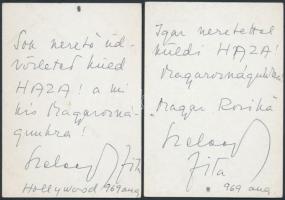 Sok szerető üd-
vözletet küld
HAZA! a mi
kis Magyarorszá-
gunkra!
Szeleczky Zita
Hollywood 969 aug
Igaz szeretettel
küldi HAZA!
Magyarországunkba
"Magyar Rózsika"
Szeleczky
Zita
969 aug.